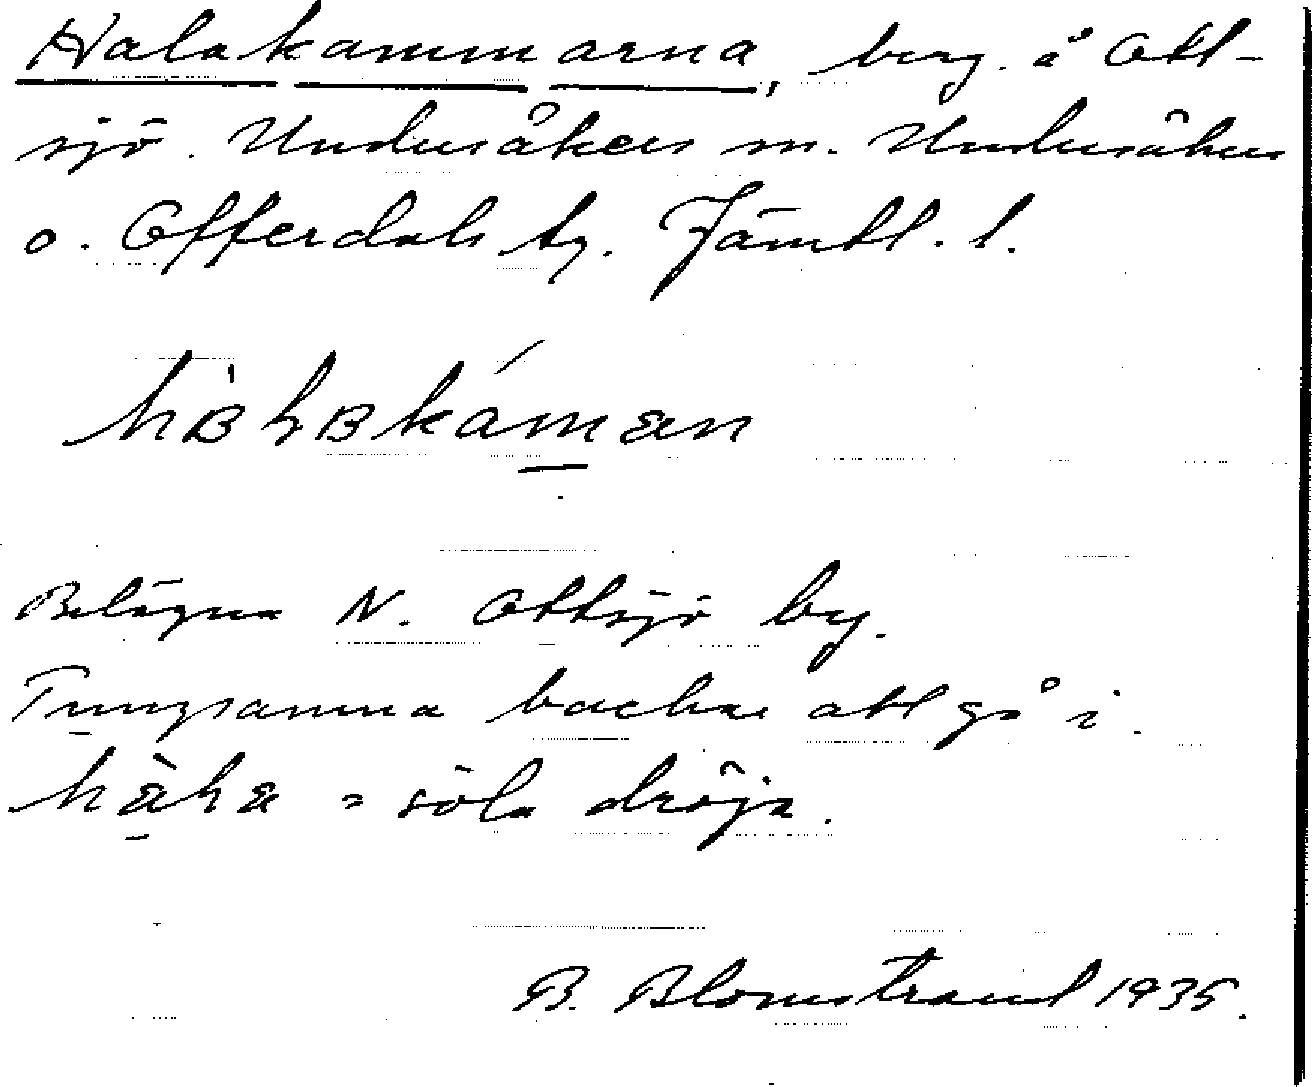 Halakammarna, berg. å Ott-
sjö. Undersåkers sn. Undersåkers
o. Offerdals tg. Jämtl. l.
hàʟʙkáman
Belägna N. Ottsjö by.
Tungsamma backar att gå i.
hala = söla dröja.
B. Blomstrand 1935.